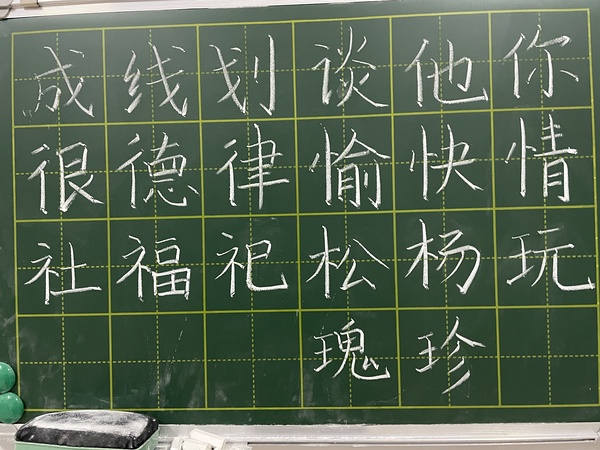 成线划谈他你
很德律愉快情
社福祀松杨玩
瑰珍